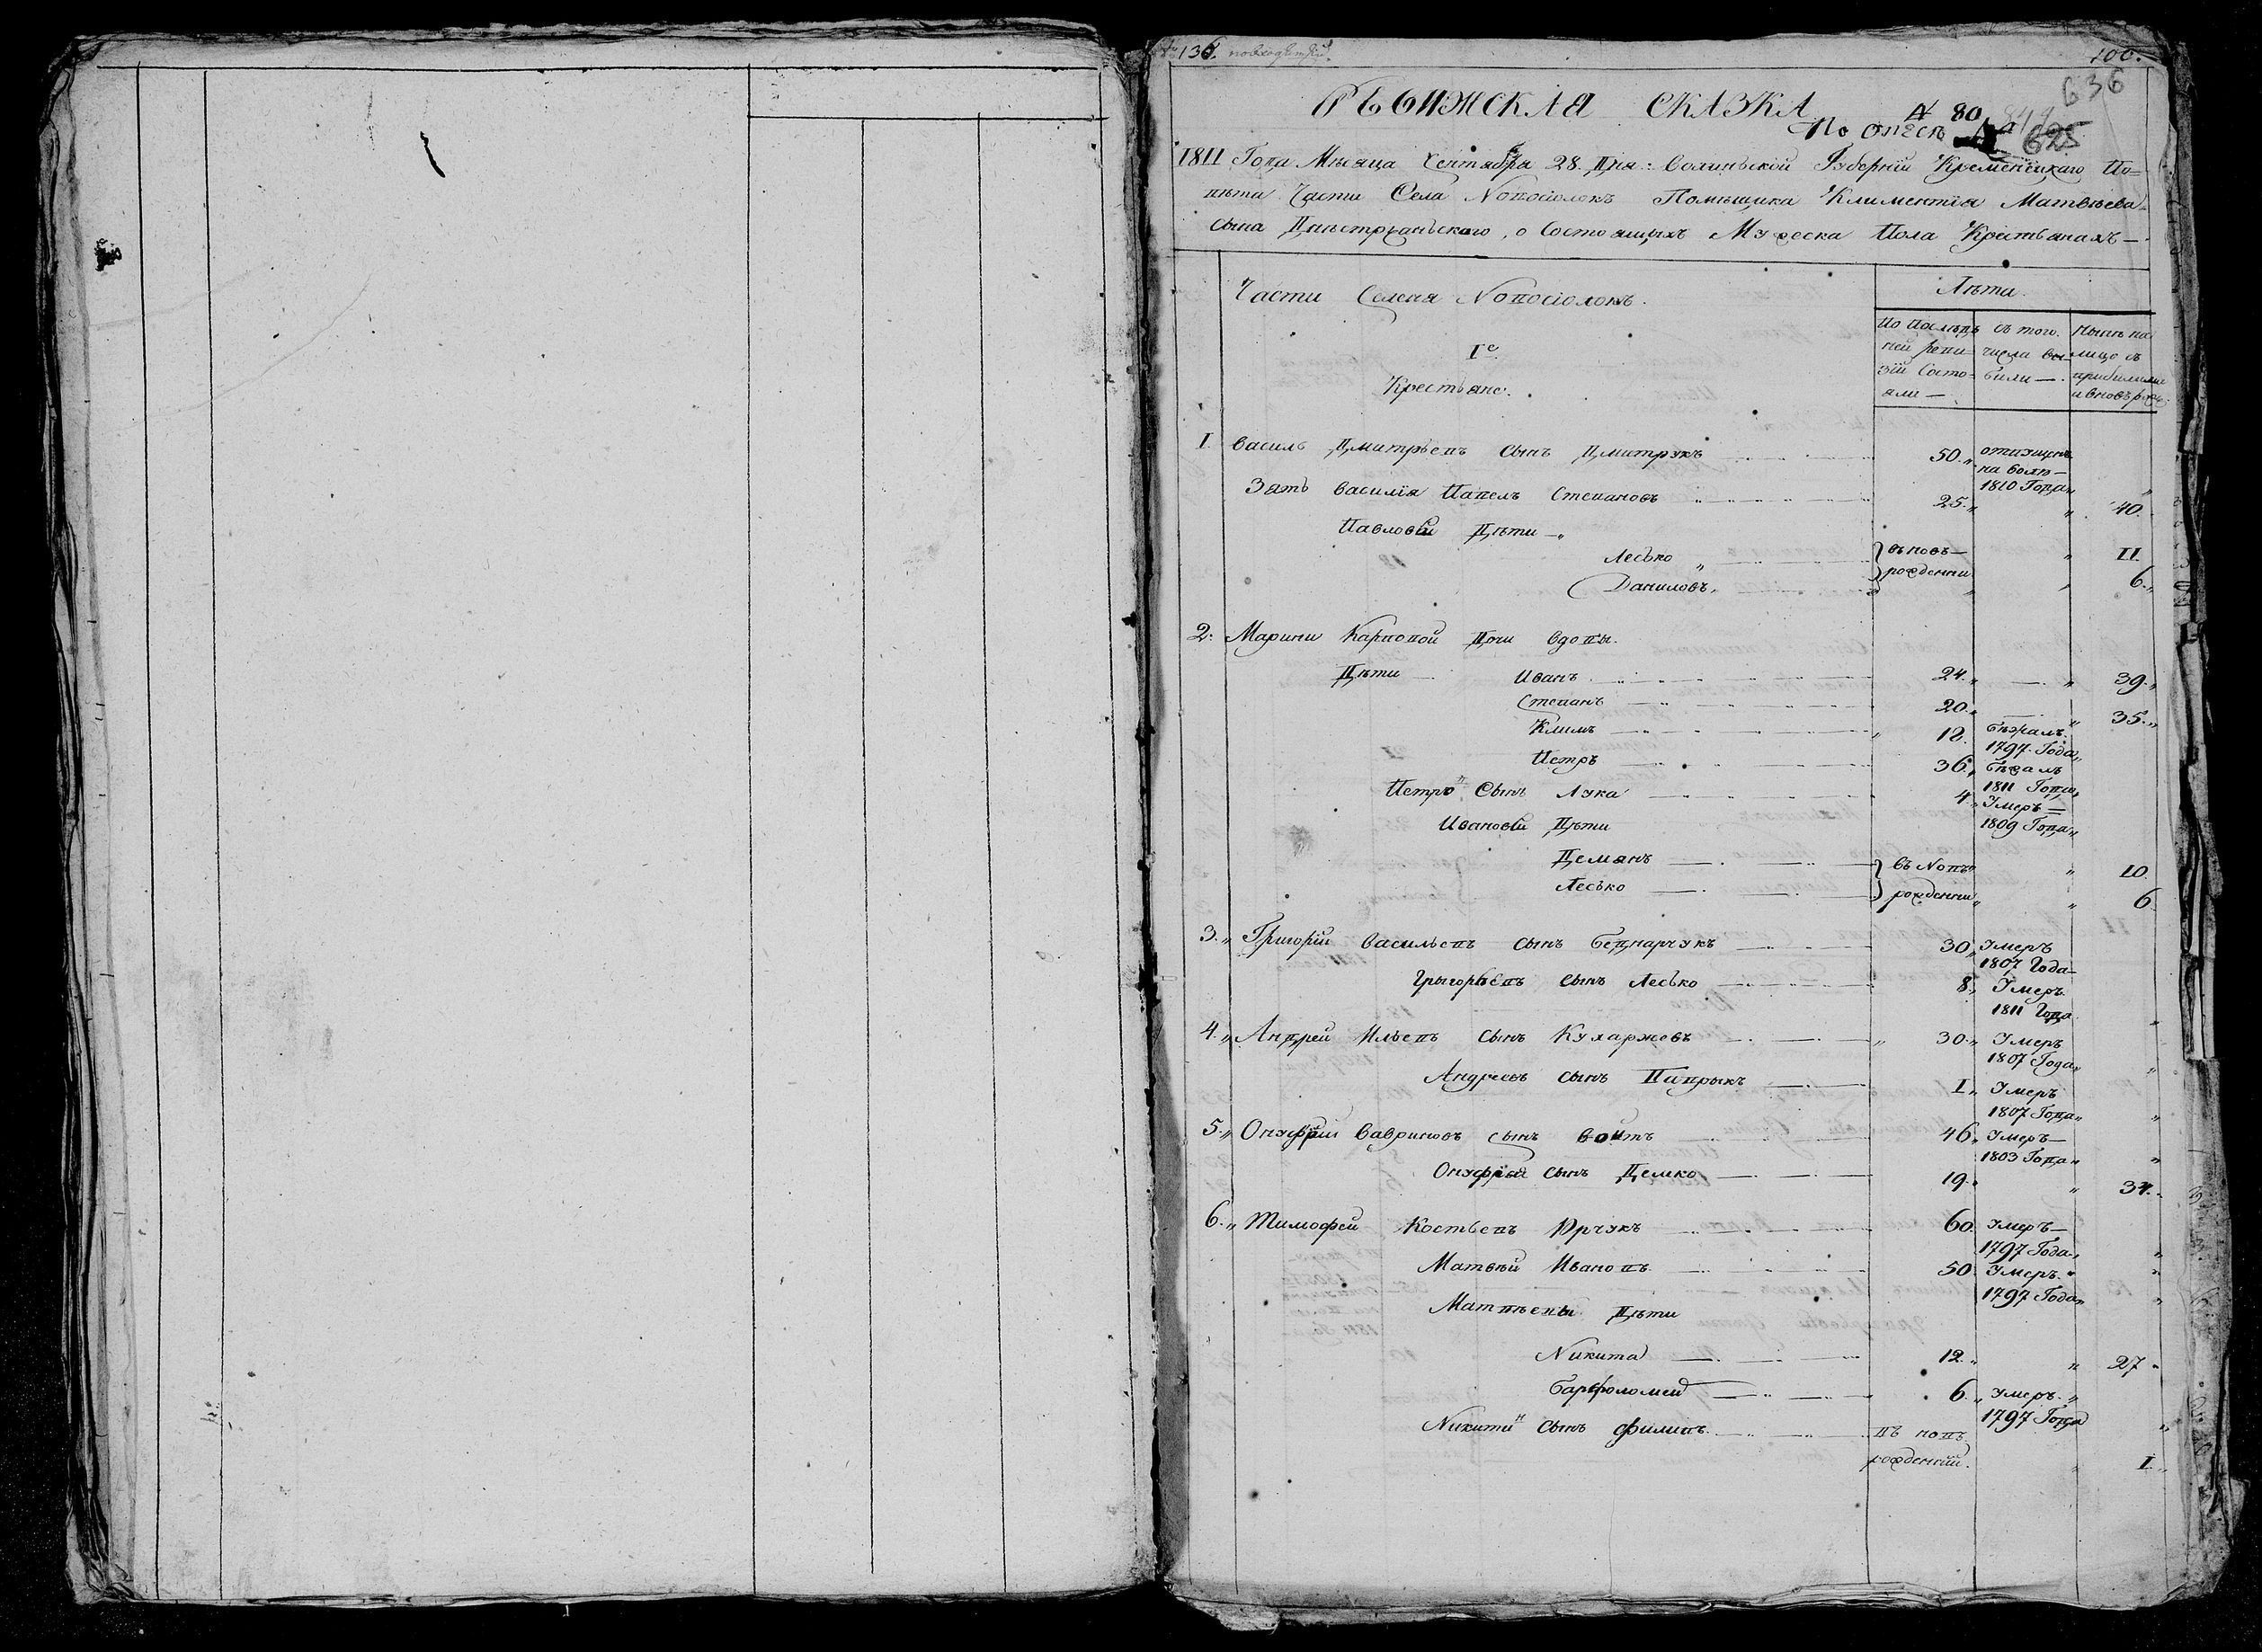 136.
100.
636
РЕВИЖСКАЯ СКАЗКА
№ 80
По описи
1811 Года Мѣсяца Сентября 28. Дня: Волиньской Губернїи Кременецкаго По=
вѣта Части Села Новосїолокъ Помѣщика Климентїя Матвѣева
сына Днѣстрѣанѣского, о Состоящихъ Мужеска Пола Крестьянахъ —
Части Селеня Новосїолокъ.
Лѣта.
По Послѣд
ней реви
зїи Состо-
яли —
съ того.
числа вы-
били —.
Нынѣ на
лицо съ
прибилими
и вновъ рож:
1е.
Крестьяне.
1. Василь Дмитрѣевъ сынъ Дмитрукъ 50.
на волю —
1810 Года
Зять Василїя Павелъ Степановъ 25. 40.
Павловы Дѣти
Лесько въ новъ — 11.
Даниловъ рожденни 6.
2. Марини Карповой Дочи вдовы.
Дѣти Иванъ 24. 39.
Степанъ 20. 35.
Климъ 12. бѣжалъ
1797. Года
Петръ 36. бѣжалъ
1811 Года
Петровъ Сынъ Лука 4 Умеръ —
1809 Года
Ивановы Дѣти
Демянъ въ Новъ 10.
Лесько рожденни 6
3. Григорїй Васильевъ сынъ Беднарчукъ 30 Умеръ
1807 Года
Грыгорьевъ сынъ Лесько 8 Умеръ
1811 Года
4. Андрей Ильевъ сынъ Кухаржовъ 30 Умеръ
1807 Года
Андреевъ сынъ 1 Умеръ
1807 Года
5. Онуфрїй Вавриновъ сынъ Войтъ 46 Умеръ —
1803 Года
Онуфрїя сынъ Демко 19. 34.
6. Тимофей Костьевъ Юрчукъ 60. Умеръ —
1797 Года
Матвѣй Ивановъ 50 Умеръ.
1797 Года
Матвѣевы Дѣти
Никита 12. 27
Барфоломей 6. Умеръ.
1797 Года
Никитин Сынъ Филипъ въ новъ
рожденнїй. 1